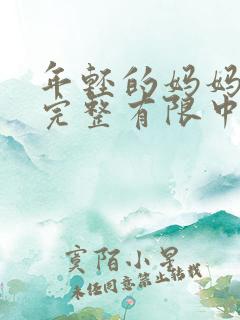 年轻的妈妈
完整有限中
寞陌小旻
未经同意禁止转载